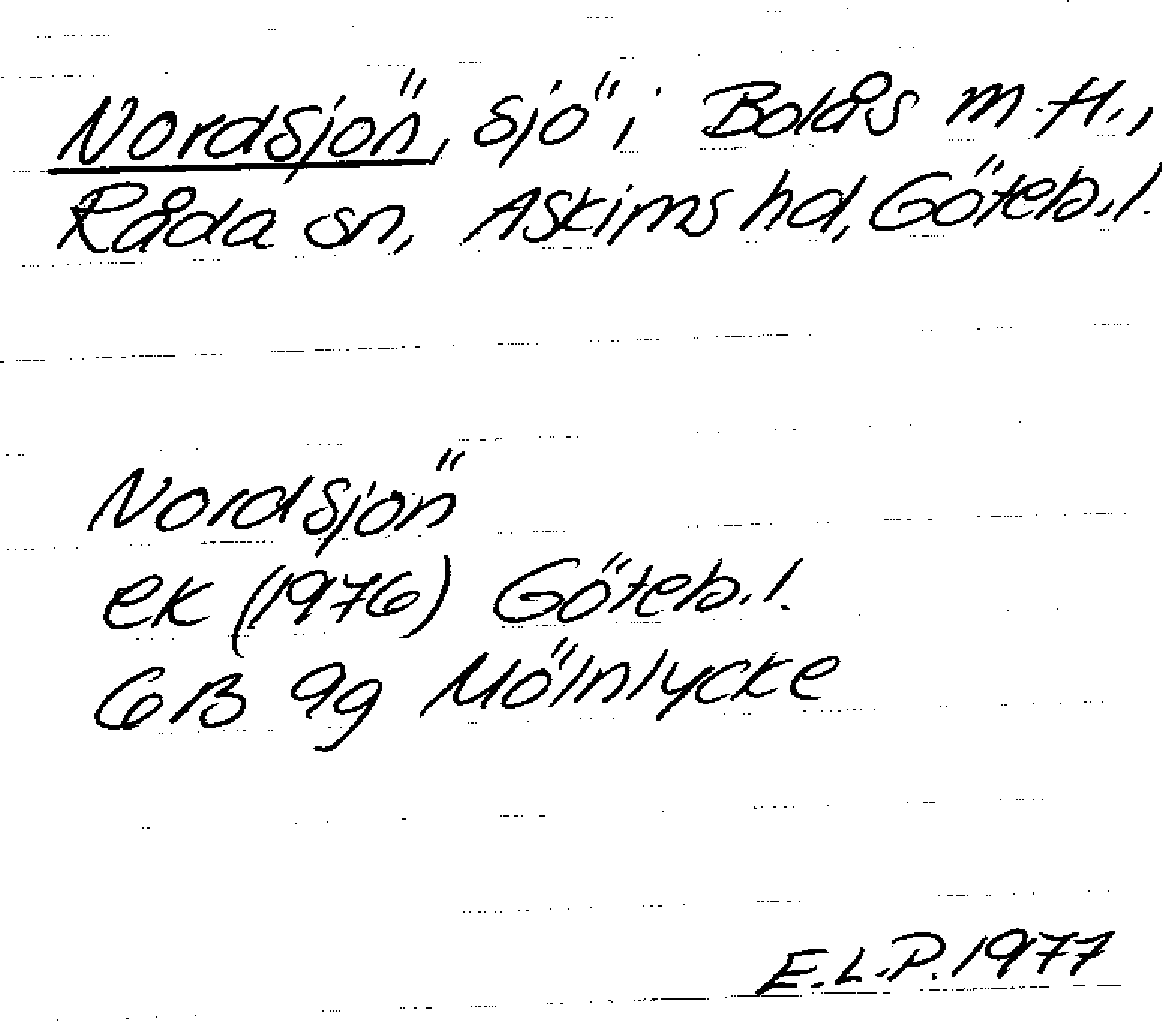 Nordsjön, sjö i Bolås m.fl.,
Råda sn, Askims hd, Göteb.l.
Nordsjön
ek (1976) Göteb.l.
6B 9g Mölnlycke
E.L.P. 1977